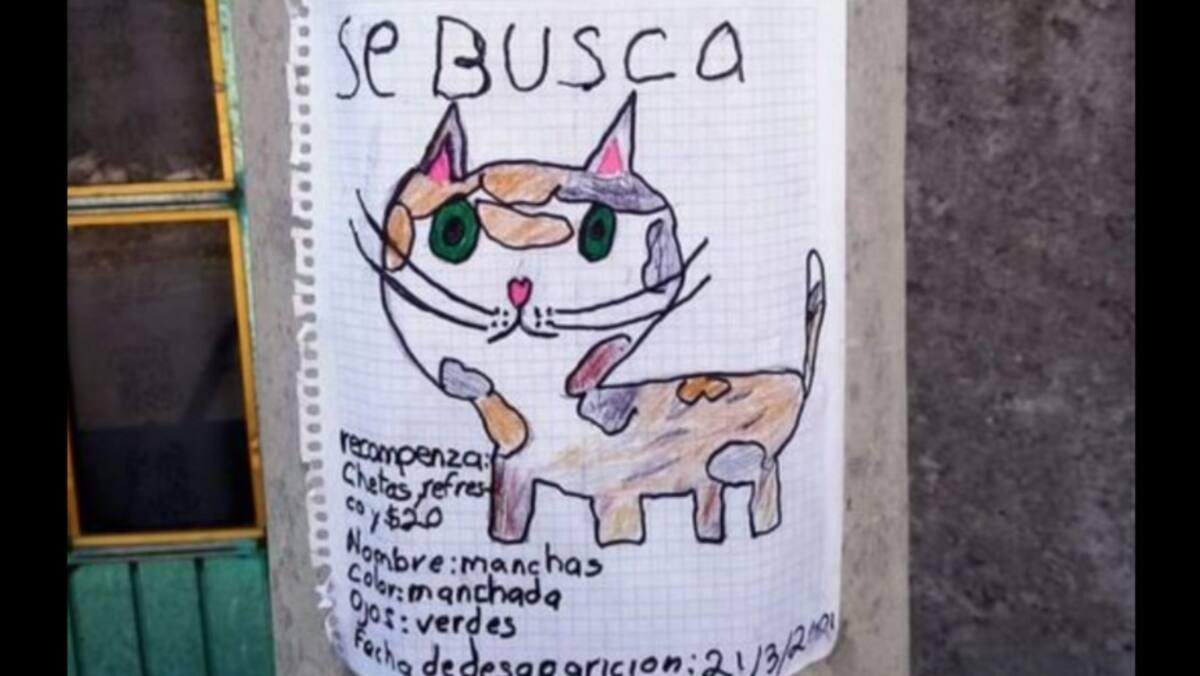 Se BUSCA
recompenza:
Chetas, refres-
co y $20
Nombre: manchas
Color: manchada
Ojos: verdes
Fecha de desaparicion: 21/3/